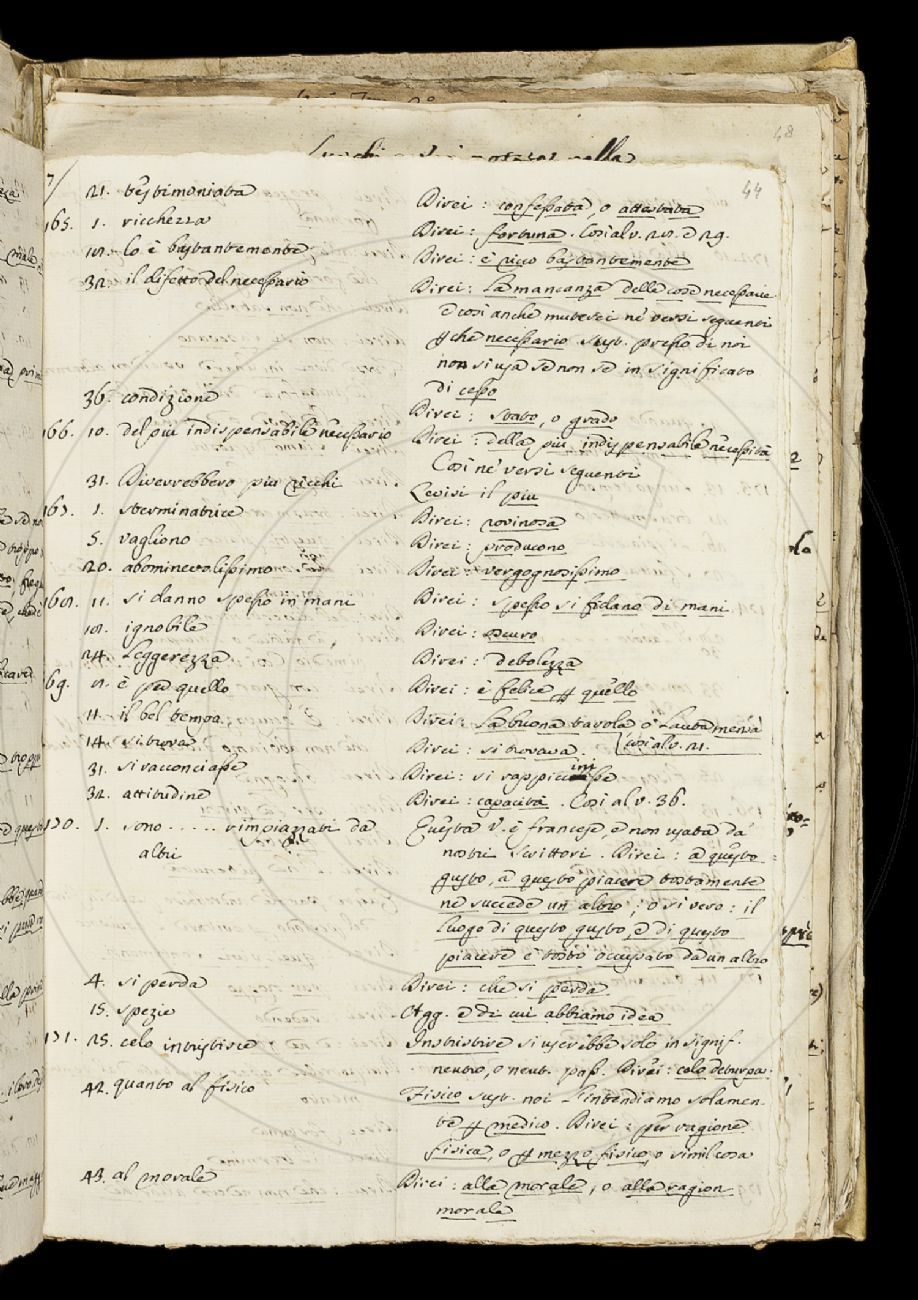 48
44
21. testimoniata Direi: confessata, o attestata
165. 1. ricchezza Direi: fortuna. Così al v. 28. e 29.
18. lo è bastantemente Direi: è ricco bastantemente
32. il difetto del necessario Direi: la mancanza delle cose necessarie
e così anche muterei ne' versi seguenti
che necessario sust. presso di noi
non si usa se non se in significato
di cesso
36. condizione Direi: stato, o grado
166. 10. del più indispensabile necessario Direi: della più indispensabile necessità
Così ne' versi seguenti
31. Diverrebbero più ricchi Levisi il più
167. 1. sterminatrice Direi: rovinosa
5. vagliono Direi: producono
20. abominevolissimo Direi: vergognosissimo
168. 11. si danno spesso in mani Direi: spesso si fidano di mani
18. ignobile Direi: oscuro
24. Leggerezza Direi: debolezza
69. 8. è per quello Direi: è felice per quello
11. il bel tempo Direi: la buona tavola o lauta mensa
14. si trova Direi: si trovava. Così al v. 21.
31. si racconciasse Direi: si rappiccinisse
32. attitudine Direi: capacità. Così al v. 36.
170. 1. sono ..... rimpiazzati da Questa v. è francese, e non usata da
altri nostri Scrittori. Direi: a questo
gusto, a questo piacere tostamente
ne succede un altro; o si vero: il
luogo di questo gusto, e di questo
piacere è tosto occupato da un altro
4. si perda Direi: che si perda
15. spezie Agg. e di cui abbiamo idea
171. 25. celo intristisce Instristire si userebbe solo in signif.
neutro, o neut. pass. Direi: celo deturpa.
42. quanto al fisico Fisico sust. noi l'intendiamo solamen-
te per medico. Direi: per ragione
fisica, o per mezzo fisico, o simil cosa
43. al morale Direi: alla morale, o alla ragion
morale